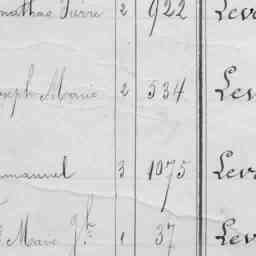 Pierre 2 922 Lev
Joseph Marie 2 534 Lev
Emmanuel 3 1075 Lev
Marie Jh 1 37 Lev